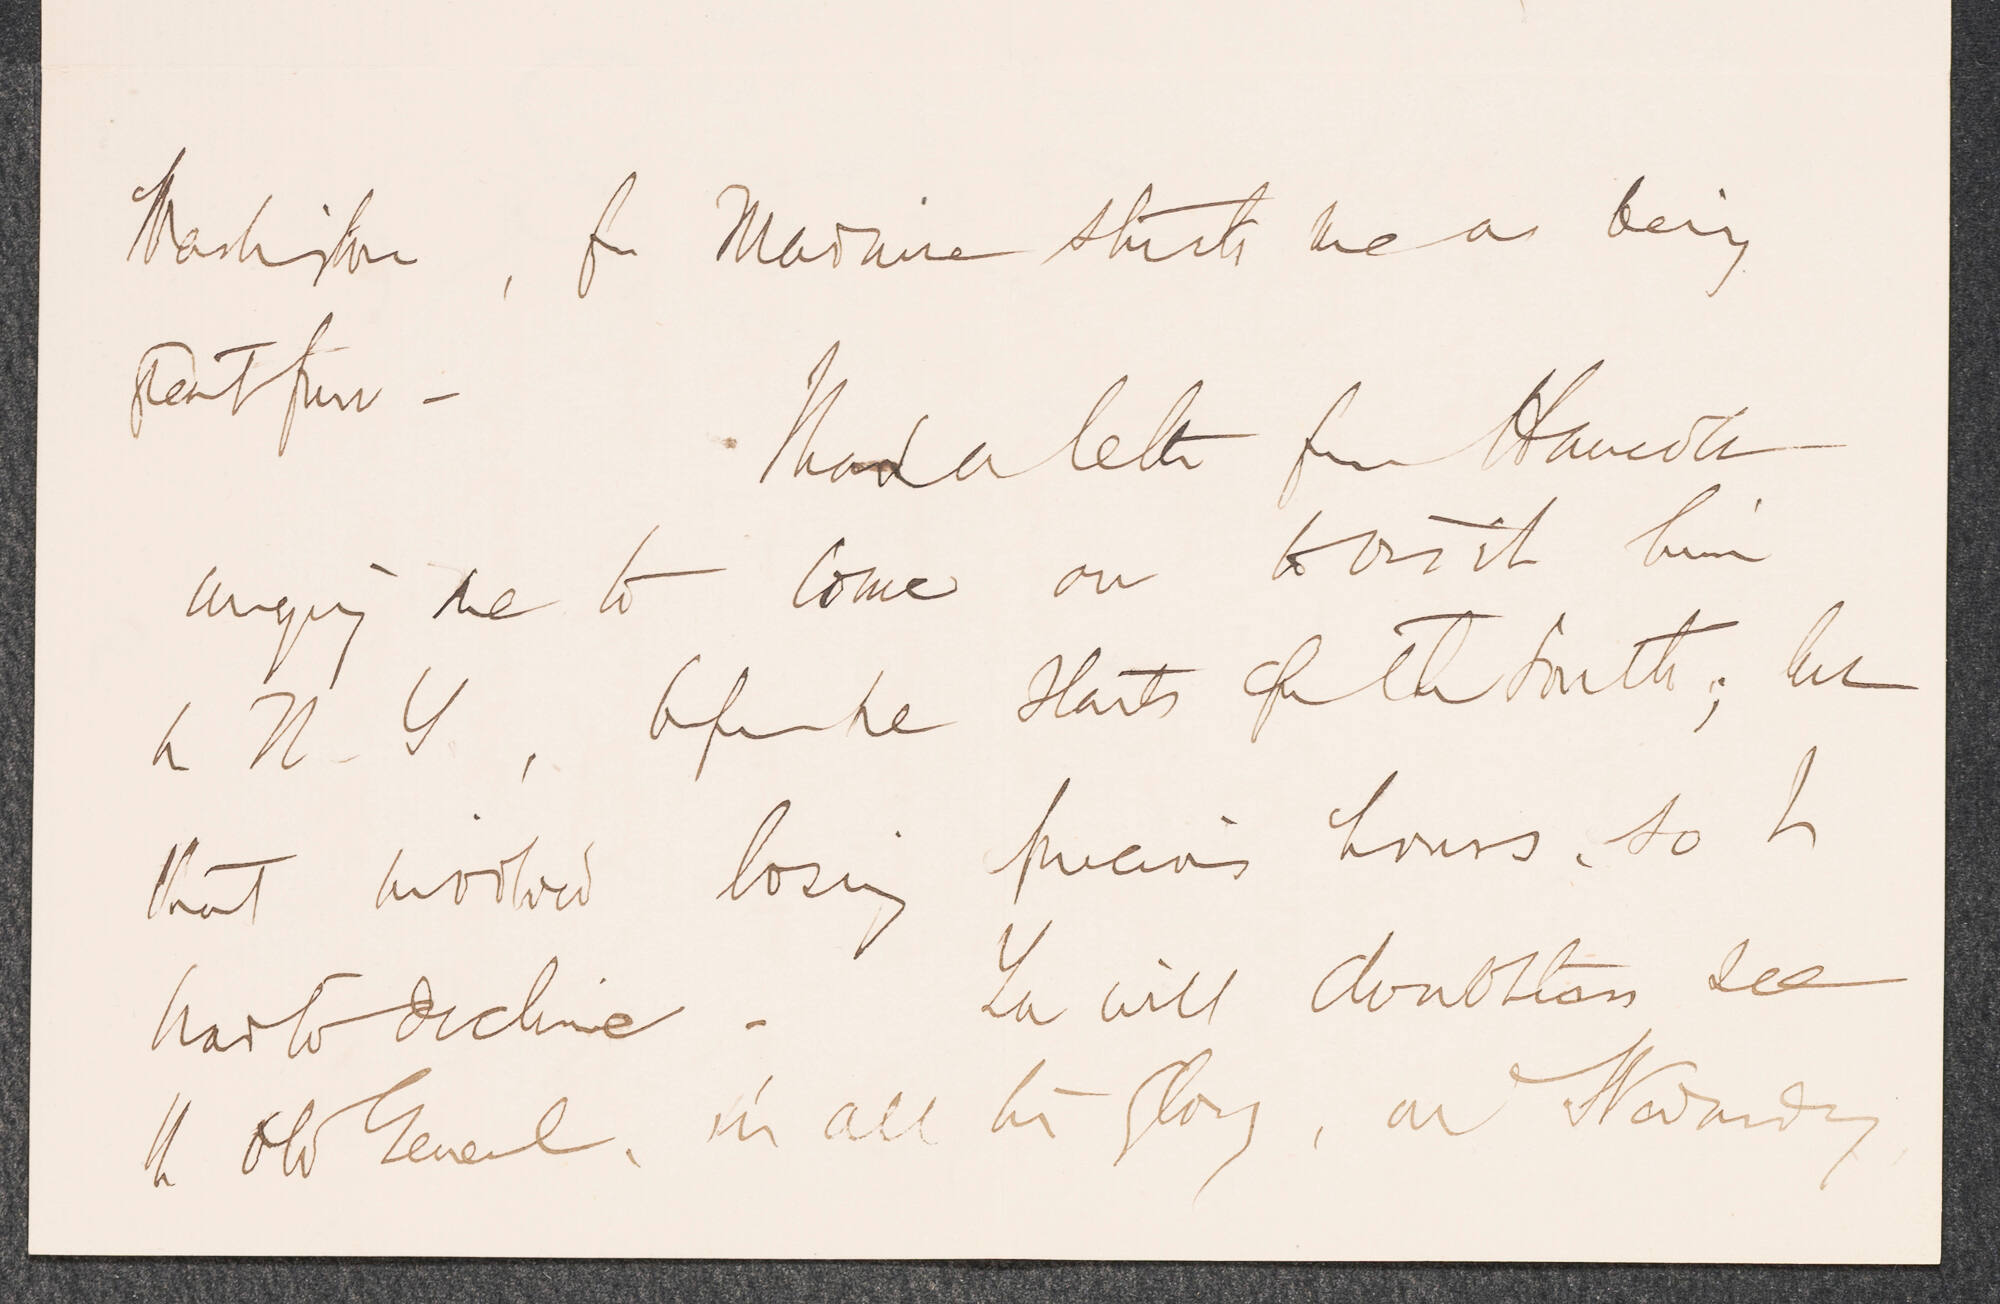 Washington, for Madame strikes me as being
great fun -
I had a letter from Hancock
urging me to come on to visit him
in N-Y, before he starts for the South; but
that involved losing precious hours, so I
had to decline - You will doubtless see
the old General, in all his glory, on Wednesday,